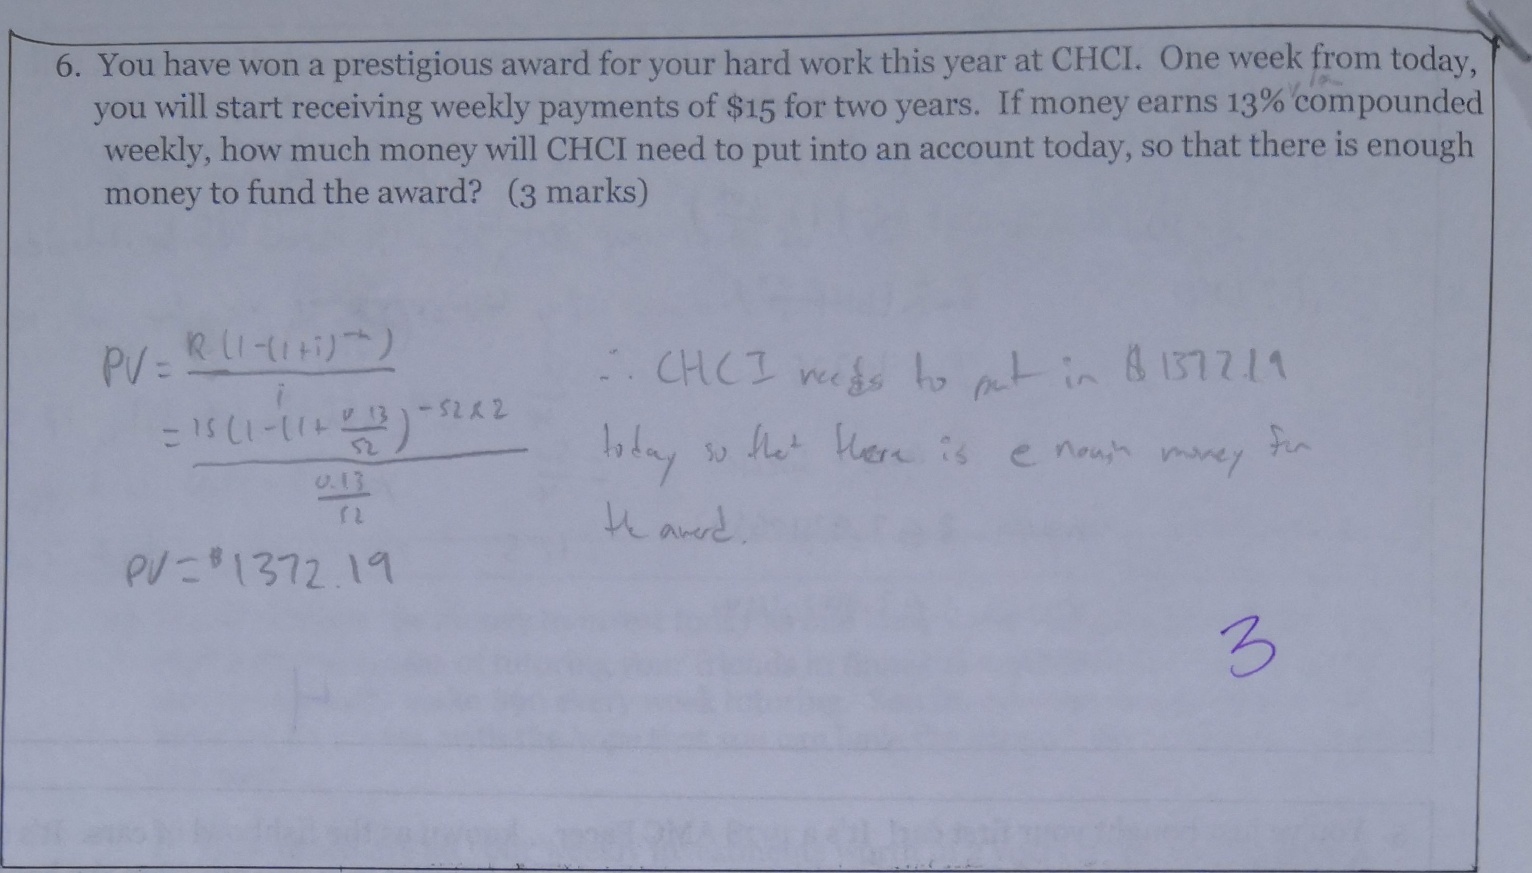 6. You have won a prestigious award for your hard work this year at CHCI. One week from today,
you will start receiving weekly payments of $15 for two years. If money earns 13% compounded
weekly, how much money will CHCI need to put into an account today, so that there is enough
money to fund the award? (3 marks)
PV = R(1-(1+i)^-n) / i
= 15(1-(1+ 0.13/52)^-52x2 / 0.13/52
PV = $1372.19
∴ CHCI needs to put in $1372.19
today so that there is enough money for
the award.
3